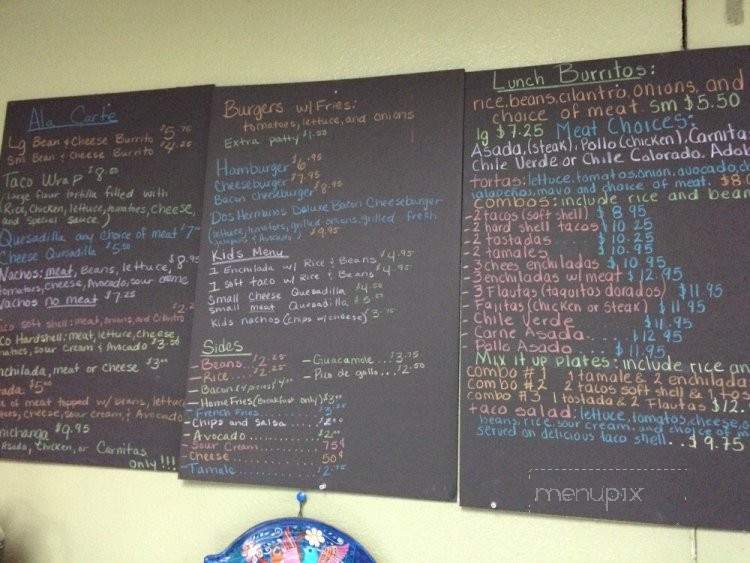 Ala Carte
Lg Bean & Cheese Burrito $5.75
Sm Bean & Cheese Burrito $4.25
Taco Wrap $8.
Large flour tortilla filled with
Rice, Chicken, lettuce, tomatoes, cheese,
and special sauce
Quesadilla any choice of meat $7
Cheese Quesadilla $5.50
Nachos: meat, Beans, lettuce, $8.95
tomatoes, cheese, Avocado, sour creme
Nachos no meat $7.25
Taco soft shell: meat, onions, and Cilantro
Taco Hardshell: meat, lettuce, cheese,
tomatoes, sour Cream & Avocado $3.50
Enchilada, meat or cheese $3
$5
of meat topped w/ beans, lettuce
cheese, sour cream, & Avocado
Chimichanga $9.95
Asada, Chicken, or Carnitas
only!!!
Burgers w/ Fries:
tomatoes, lettuce, and onions
Extra patty $1.00
Hamburger $6.95
Cheeseburger $7.95
Bacon cheeseburger $8.95
Dos Hermanos Deluxe Bacon Cheeseburger
lettuce, tomatoes, grilled onions, grilled fresh
& Avocado $9.95
Kids Menu
1 Enchilada w/ Rice & Beans $4.95
1 soft taco w/ Rice & Beans $4.95
Small Cheese Quesadilla $4.00
Small meat Quesadilla $5.00
Kids nachos (chips w/ cheese) $3.75
Sides
- Beans $2.25 - Guacamole... $3.75
- Rice $2.25 - Pico de gallo... $2.50
- Bacon
- Home Fries (Breakfast only)
- French Fries
- Chips and salsa
- Avocado $2.00
- Sour Cream 75¢
- Cheese 50¢
- Tamale
Lunch Burritos:
rice, beans, cilantro, onions, and
choice of meat sm $5.50
lg $7.25 Meat Choices:
Asada, (steak), Pollo (chicken), Carnita
Chile Verde or Chile Colorado. Adob
tortas: lettuce, tomatos, onion, avocado,
jalapeños, mayo and choice of meat. $8
combos: include rice and bean
- 2 tacos (soft shell) $8.95
- 2 hard shell tacos $10.25
- 2 tostadas $10.25
- 2 tamales $10.95
- 3 chees enchiladas $10.95
- 3 enchiladas w/ meat $12.95
- 3 Flautas (taquitos dorados) $11.95
- Fajitas (chicken or steak) $11.95
- Chile Verde $11.95
- Carne Asada.... $12.95
- Pollo Asado... $11.95
Mix it up plates: include rice an
combo #1 1 tamale & 2 enchilada
combo #2 2 tacos soft shell & 1
combo #3 1 tostada & 2 Flautas $12.
taco salad: lettuce, tomatos, cheese,
beans, rice, sour cream, and choice of
served on delicious taco shell... $9.75
menupix